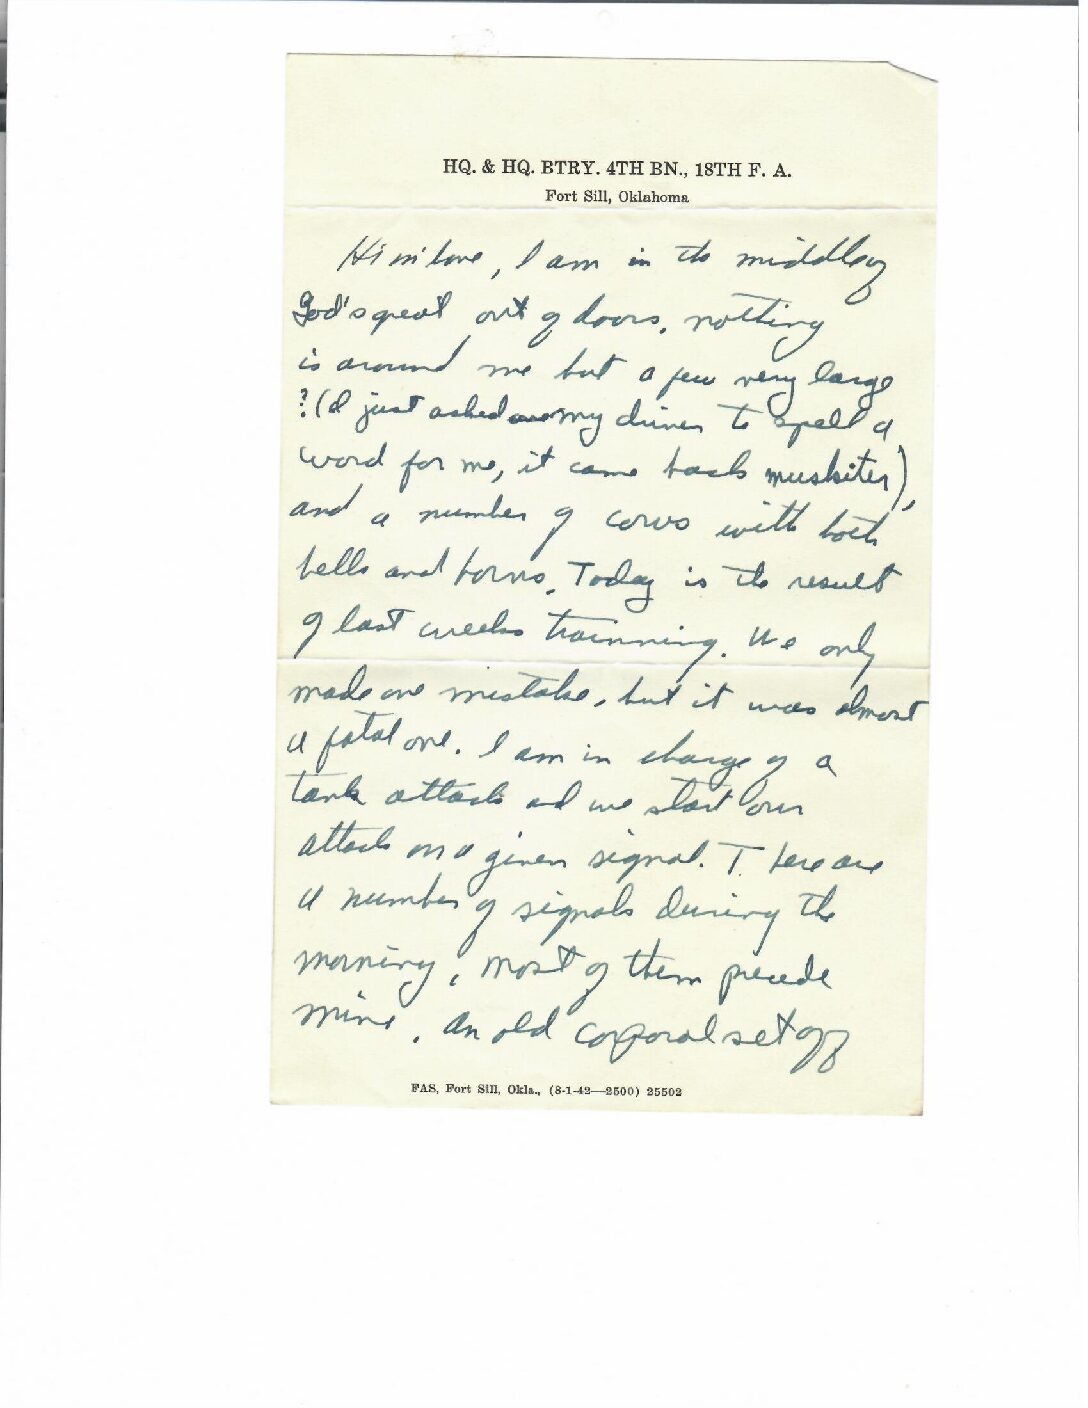 HQ. & HQ. BTRY. 4TH BN., 18TH F. A.
Fort Sill, Oklahoma
Hi mi' love, I am in the middle of
God's great out of doors, nothing
is around me but a few very large
? (I just asked my driver to spell a
word for me, it came back muskiter),
and a number of cows with both
bells and horns. Today is the result
of last weeks trainning. We only
made one mistake, but it was almost
a fatal one. I am in charge of a
tank attack and we start our
attack on a given signal. There are
a number of signals during the
morning, most of them precede
mine. An old corporal set off
FAS, Fort Sill, Okla., (8-1-42—2500) 25502